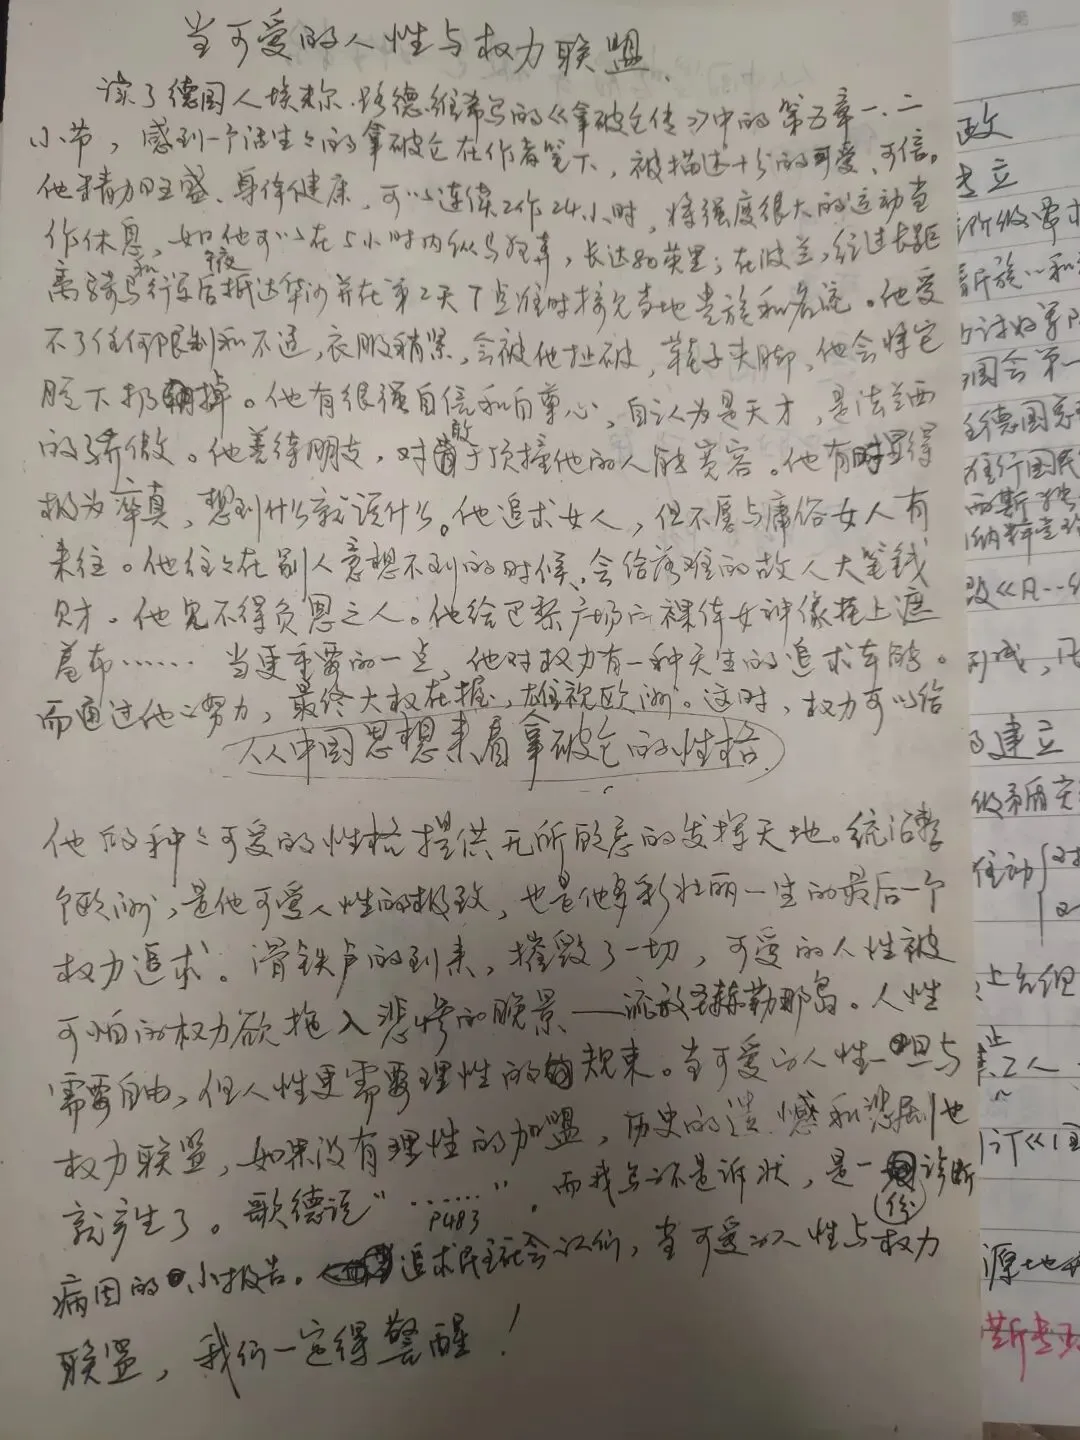 当可爱的人性与权力联盟
读了德国人埃米尔·路德维希写的《拿破仑传》中的第五章一、二
小节，感到一个活生々的拿破仑在作者笔下，被描述十分的可爱、可信。
他精力旺盛、身体健康，可以连续工作24小时，将强度很大的运动当
作休息，如他可以在5小时内纵马狂奔，长达 英里；在波兰，经过长距
离骑马和行军后 夜抵达华沙并在第2天7点准时接见当地贵族和名流。他受
不了任何限制和不适，衣服稍紧，会被他扯破，鞋子夹脚，他会将它
脱下扔掉。他有很强自信和自尊心，自认为是天才，是法兰西
的骄傲。他善待朋友，对敢于顶撞他的人能宽容。他有时显得
极为率真，想到什么就说什么。他追求女人，但不屑与庸俗女人有
来往。他往々在别人意想不到的时候，会给落难的故人大笔钱
财。他见不得负恩之人。他给巴黎广场的裸体女神像挂上遮
羞布…… 当更重要的一点，他对权力有一种天生的追求本能。
而通过他的努力，最终大权在握，雄视欧洲。这时，权力可以给
从中国思想来看拿破仑的性格
他的种々可爱的性格提供无所顾忌的发挥天地。统治整
个欧洲，是他可爱人性的极致，也是他多彩壮丽一生的最后一个
权力追求。滑铁卢的到来，摧毁了一切，可爱的人性被
可怕的权力欲拖入悲惨的晚景——流放圣赫勒那岛。人性
需要自由，但人性更需要理性的规束。当可爱的人性一旦与
权力联盟，如果没有理性的加盟，历史的遗憾和悲剧也
就产生了。歌德说“……”。而我写的不是诉状，是一份诊断
P483
病因的小报告。追求民主社会的人们，当可爱的人性与权力
联盟，我们一定得警醒！
政
专立
和
讨好军队
国会第一
德国
国民
改《
建立
级矛盾
任动
上台但
止
工人
源地